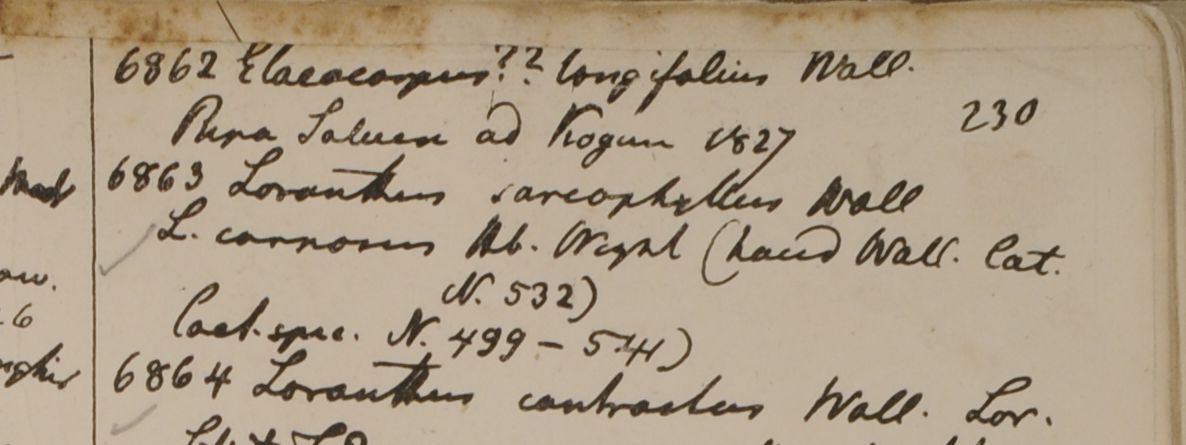 6862 Elaeocarpus?? longifolius Wall.
Ripa Saluen ad Kogun 1827
230
6863 Loranthus sarcophyllus Wall
L. carnosus Hb. Wight (haud Wall. Cat.
N. 532)
Caet. spec. N. 499 – 541)
6864 Loranthus contractus Wall. Lor.